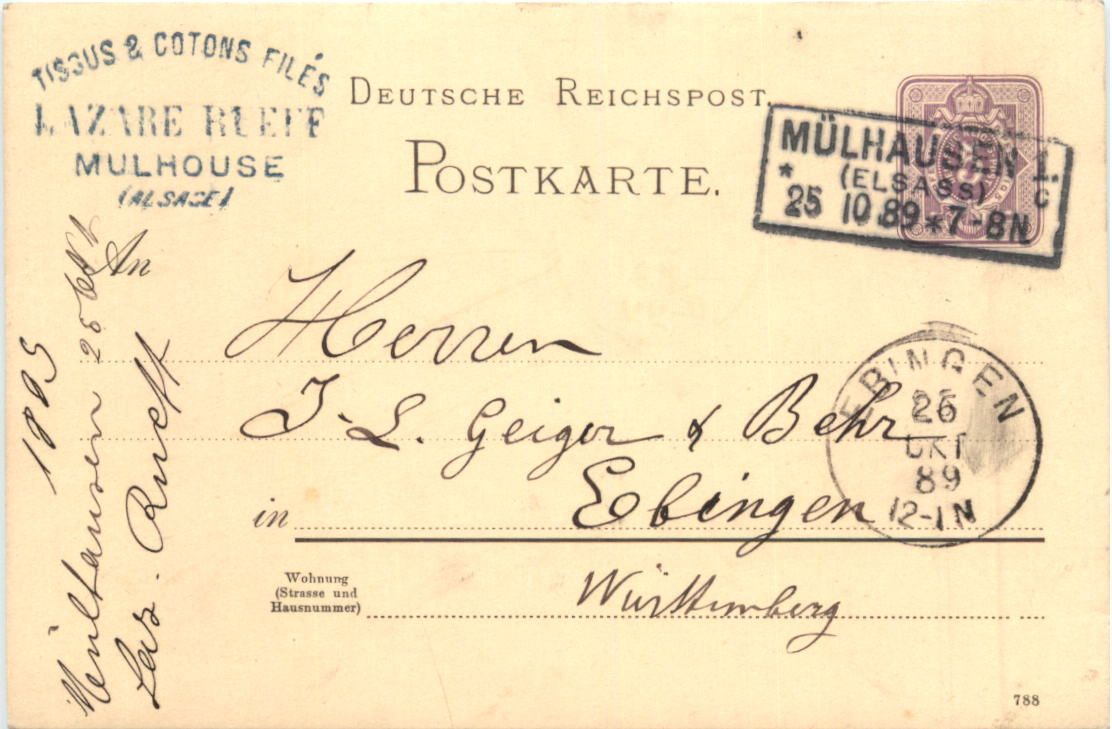 TISSUS & COTONS FILÉS
LAZARE RUEFF
MULHOUSE
(ALSACE)
DEUTSCHE REICHSPOST.
POSTKARTE.
MÜLHAUSEN 1.
* (ELSASS) c
25 10 89 * 7-8N
An
Herren
J. L. Geiger & Behr
in Ebingen
Wohnung
(Strasse und
Hausnummer)
Württemberg
EBINGEN
26
OKT
89
12-1N
1889
Mülhausen 25
Laz. Rueff
788